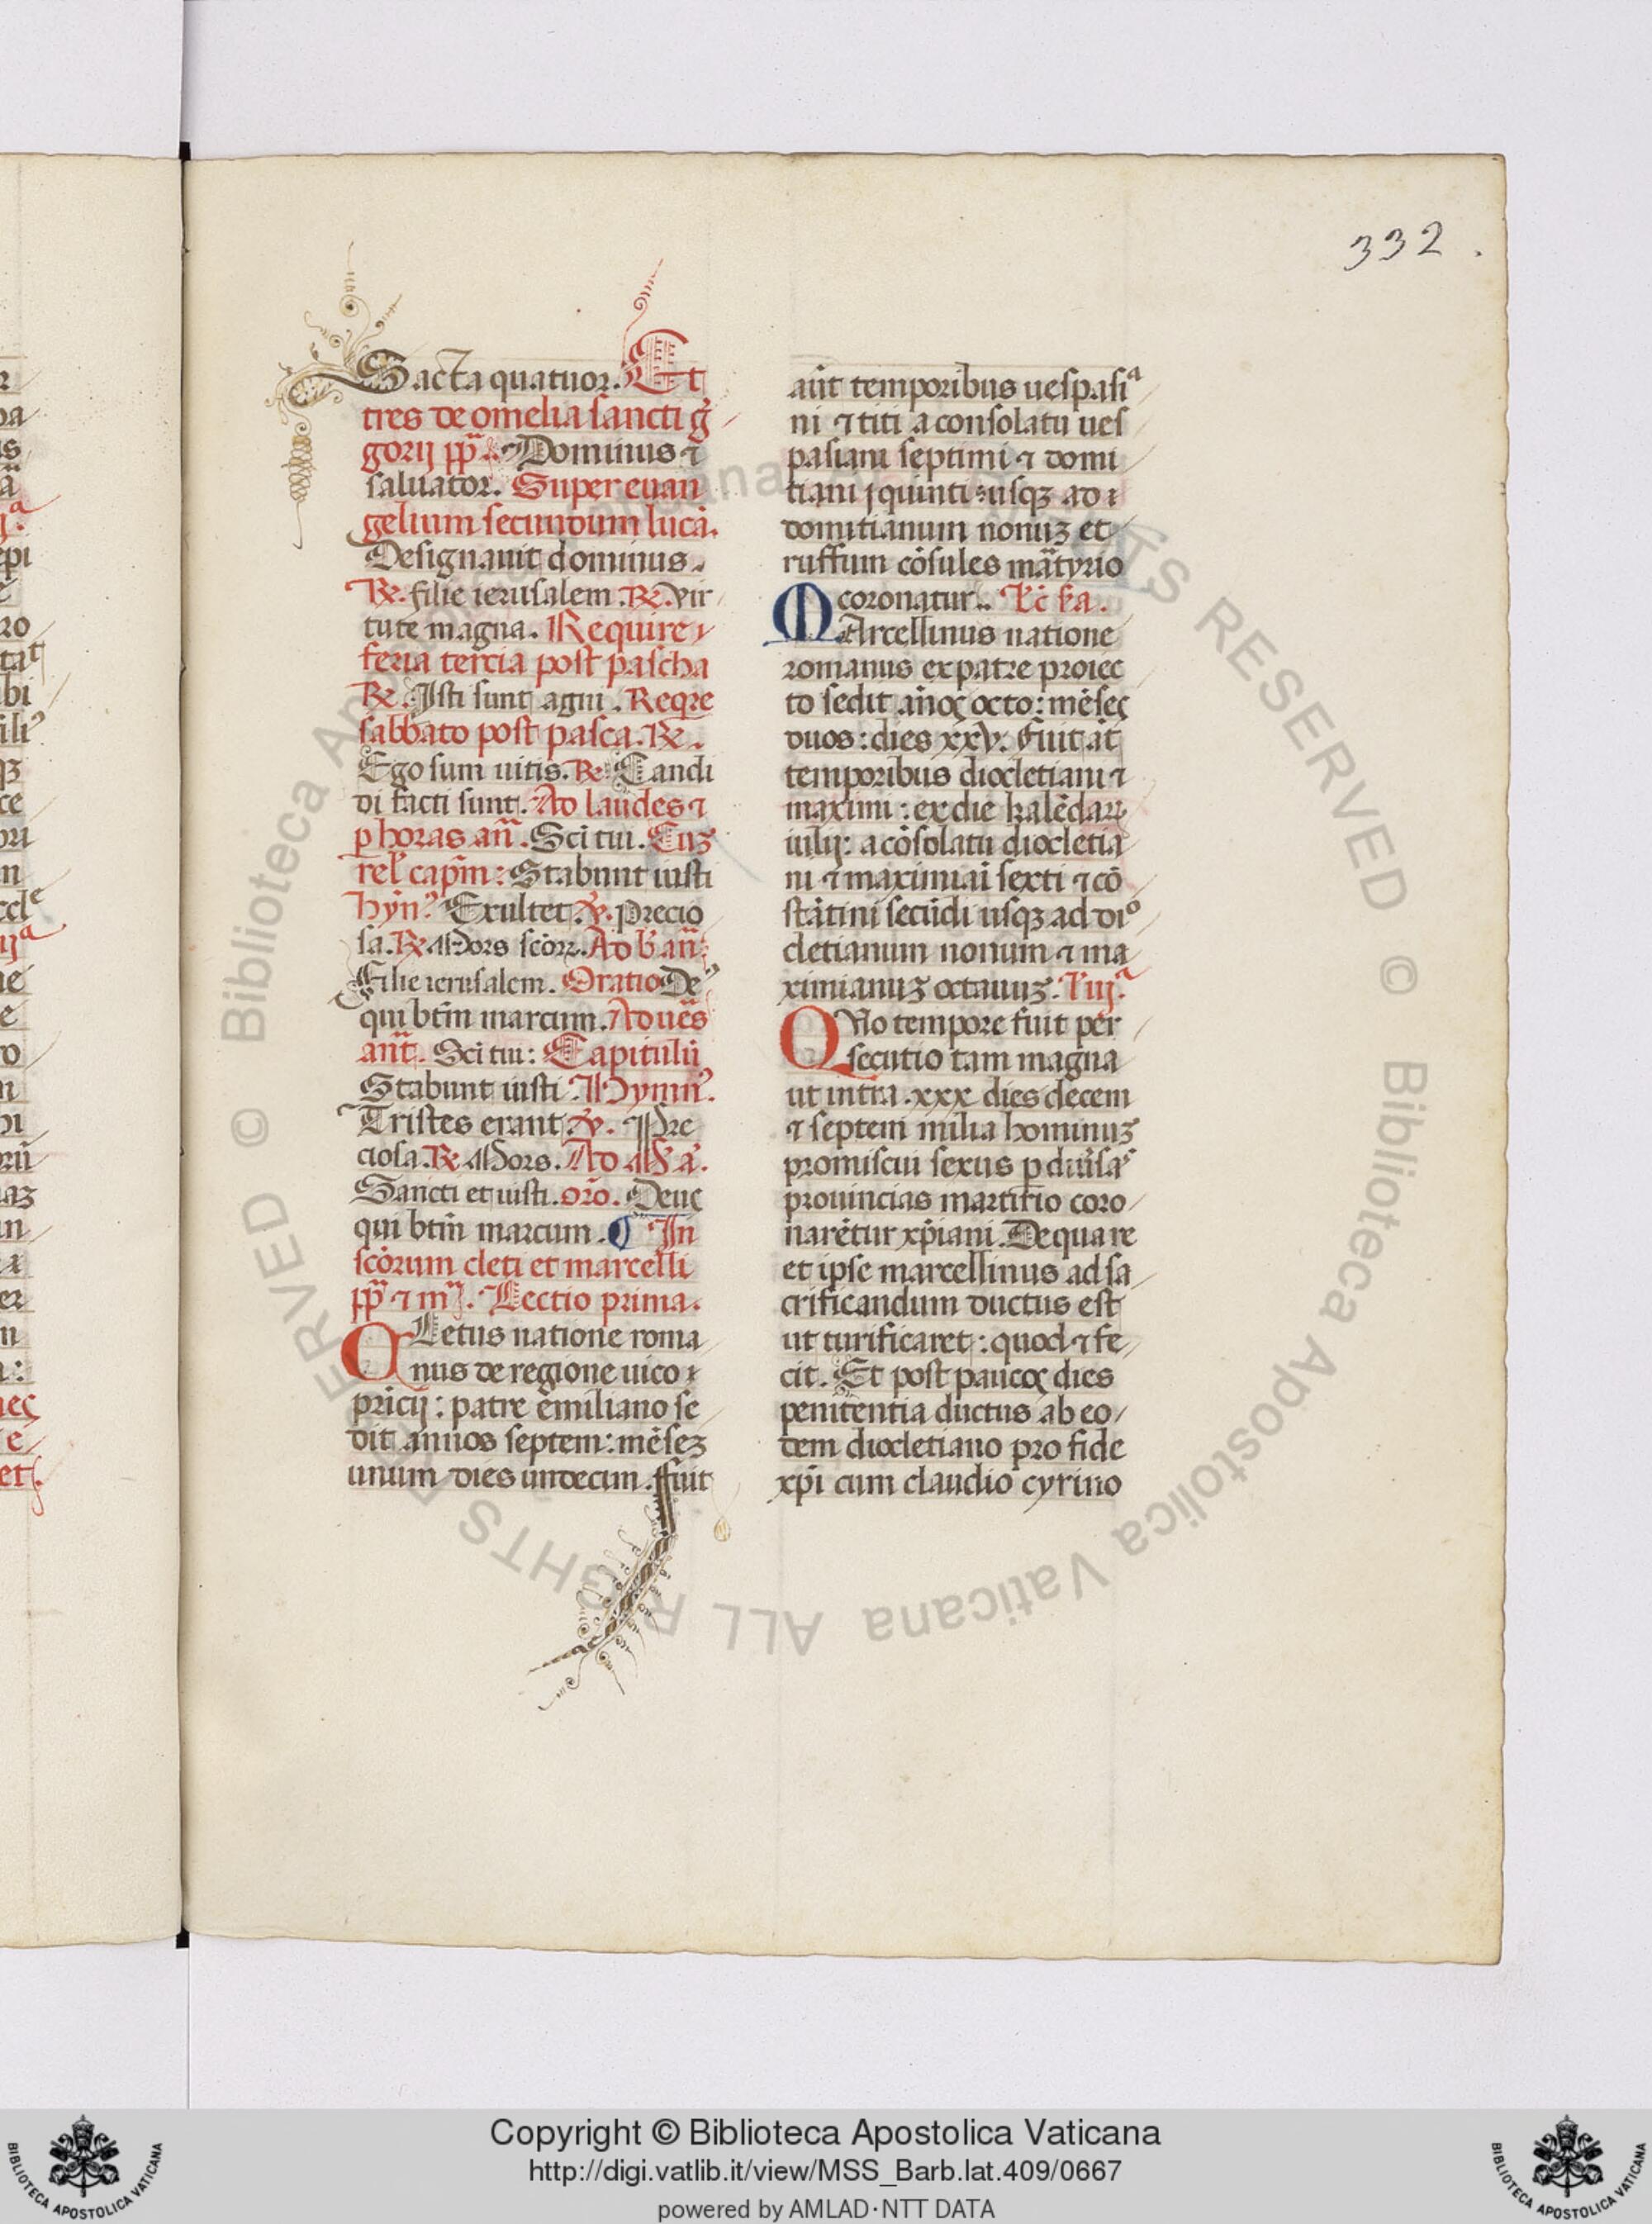 332.
Sacta quatuor. Et
tres de omelia sancti g̃
gorij pp̃. Dominus ⁊
saluator. Super euan
gelium secundum lucã.
Designauit dominus.
R̃. filie ierusalem. R̃. vir
tute magna. Require
feria tercia post pascha
R̃. Isti sunt agni. Reqre
sabbato post pasca. R̃.
Ego sum uitis. R̃. Candi
di facti sunt. Ad laudes ⁊
p horas añ. Sci tui. Cuʒ
rel' capm̃: Stabunt iusti
hyn⁹. Exultet. ℣. precio
sa. R̃. Mors scõꝝ. Ad b' añ.
Filie ierusalem. Oratio De⁹
qui btm̃ marcum. Ad ues̃
ant̃. Sci tui: Capitulũ
Stabunt iusti. Hymn⁹.
Tristes erant. ℣. Pre
ciosa. R̃. Mors. Ad M̃a.
Sancti et iusti. orõ. Deus
qui btm̃ marcum. ¶ In
scõrum cleti et marcelli
pp̃ ⁊ m̃. Lectio prima.
CLetus natione roma
nus de regione uico
pricij: patre emiliano se
dit annos septem: mẽseʒ
unum dies undecim. ffuit
aũt temporibus uespasiᵃ
ni ⁊ titi a consolatu ues
pasiani septimi ⁊ domi
tiani quinti usqʒ ad
domitianum nonuʒ et
ruffum cõsules mãtyrio
coronatur. Lc̃ ẜa.
MArcellinus natione
romanus ex patre proiec
to sedit años octo: mẽses
duos: dies xxv. fuit aũt
temporibus diocletiani ⁊
maximi: ex die kalẽdaꝝ
iulij: a cõsolatu diocletia
ni ⁊ maximiãi sexti ⁊ cõ
stãtini secũdi usqʒ ad diᵒ
cletianum nonum ⁊ ma
ximianuʒ octauuʒ. L' iijᵃ.
QUo tempore fuit per
secutio tam magna
ut intra .xxx dies decem
⁊ septem milia hominuʒ
promiscui sexus p diũsaˢ
prouincias martirio coro
narẽtur xp̃iani. De qua re
et ipse marcellinus ad sa
crificandum ductus est
ut turificaret: quod ⁊ fe
cit. Et post paucos dies
penitentia ductus ab eo
dem diocletiano pro fide
xp̃i cum claudio cyrino
Copyright © Biblioteca Apostolica Vaticana
http://digi.vatlib.it/view/MSS_Barb.lat.409/0667
powered by AMLAD·NTT DATA